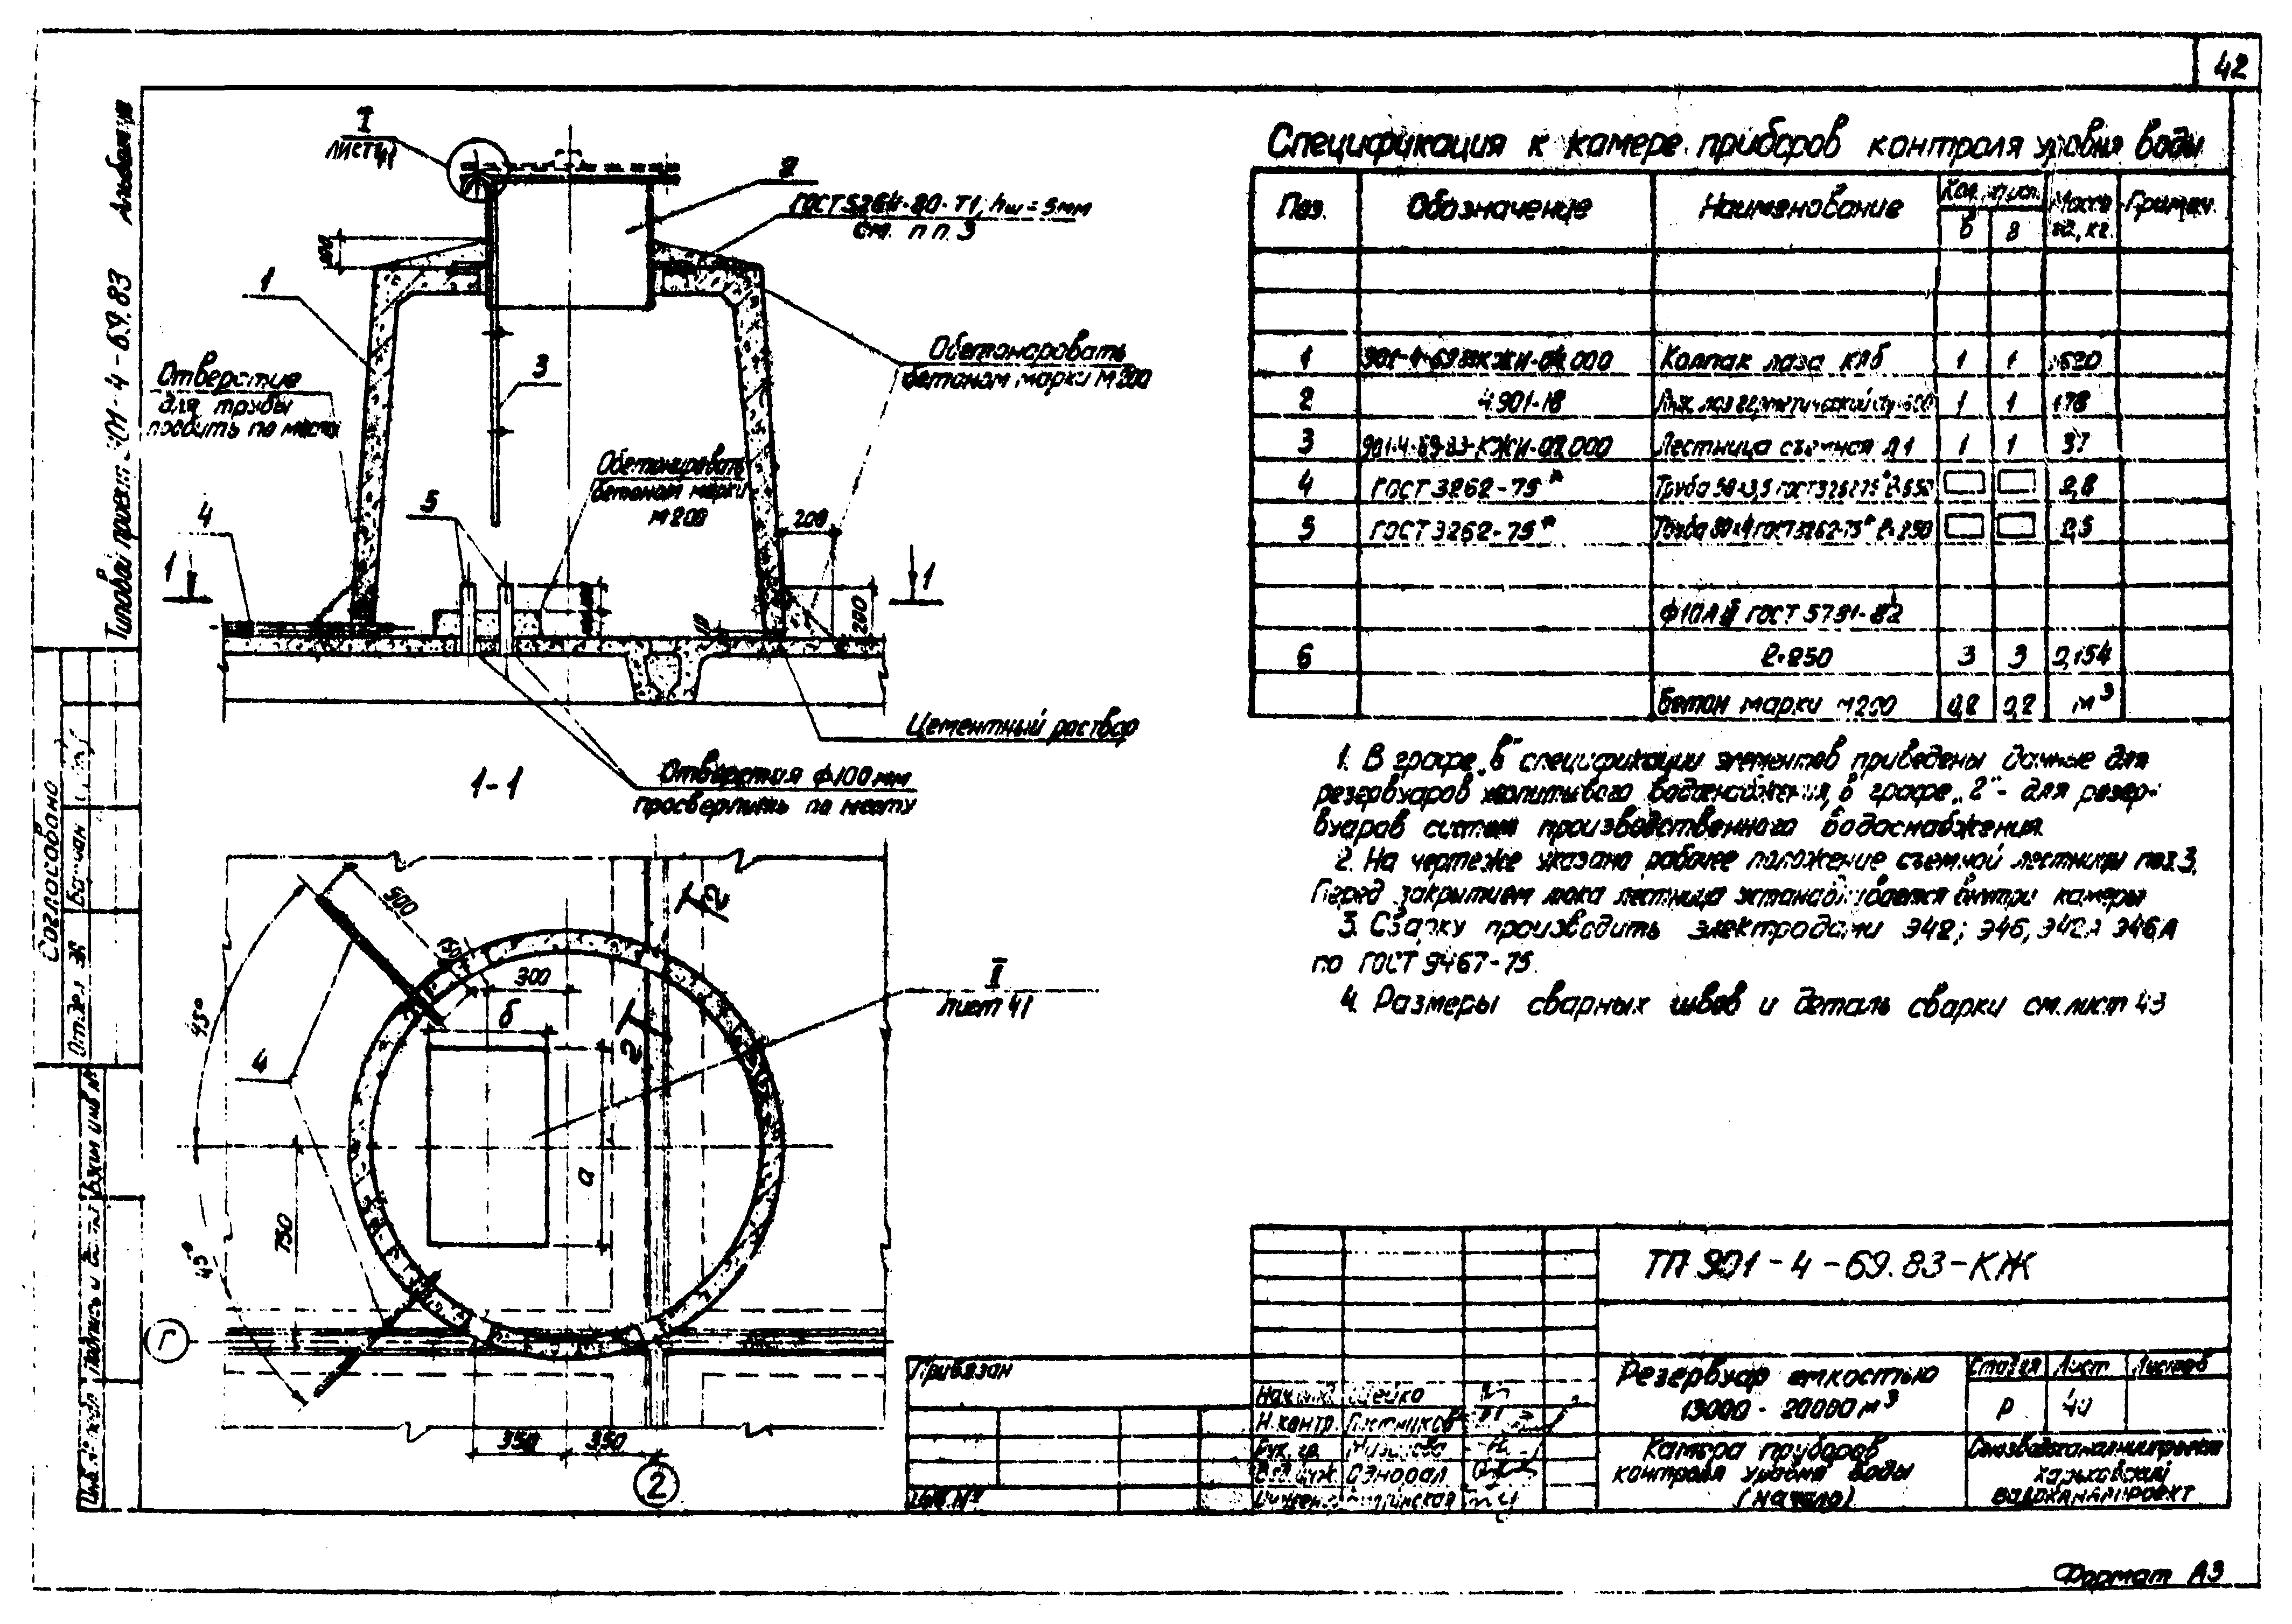 42
Типовой проект 901-4-69.83 Альбом
I
лист 41
2
ГОСТ 5264-80-Т1, hш=5мм
см. п п. 3
100
1
Отверстие
для трубы
пробить по месту
3
Обетонировать
бетоном марки М200
Обетонировать
бетоном марки
М200
5
4
200
1
1
200
10
Цементный раствор
Отверстия ф100мм
просверлить по месту
1-1
500
150
300
б
2
2
II
лист 41
45°
4
а
750
45°
Г
350
350
2
Спецификация к камере приборов контроля уровня воды
Поз. Обозначение Наименование Кол. Масса ед., кг. Примеч.
1 901-4-69.83-КЖИ-04.000 Колпак лаза КЛ6 1 1 620
2 4.901-18 Люк лаз герметический 1 1 178
3 901-4-69.83-КЖИ-02.000 Лестница съемная Л1 1 1 37
4 ГОСТ 3262-75* Труба 50×3,5 ГОСТ 3262-75* 2,8
5 ГОСТ 3262-75* Труба 80×4 ГОСТ 3262-75* ℓ=250 2,5
ф10АII ГОСТ 5781-82
6 ℓ=250 3 3 0,154
Бетон марки М200 0,2 0,2 м³
1. В графе „в" спецификации элементов приведены данные для
резервуаров хозпитьевого водоснабжения, в графе „г" - для резер-
вуаров систем производственного водоснабжения.
2. На чертеже указано рабочее положение съемной лестницы поз.3.
Перед закрытием люка лестница устанавливается внутри камеры
3. Сварку производить электродами Э42; Э46, Э42А Э46А
по ГОСТ 9467-75.
4. Размеры сварных швов и деталь сварки см. лист 43
Согласовано
Отдел
Инв. № подл. Подпись и дата Взам инв №
ТП 901-4-69.83-КЖ
Привязан
Инв. №
Н.контр.
Рук. гр.
Вед. инж.
Резервуар емкостью
13000-20000 м³
Стадия Лист Листов
Р 40
Камера приборов
контроля уровня воды
(начало)
Союзводоканалниипроект
Харьковский
Водоканалпроект
Формат А3